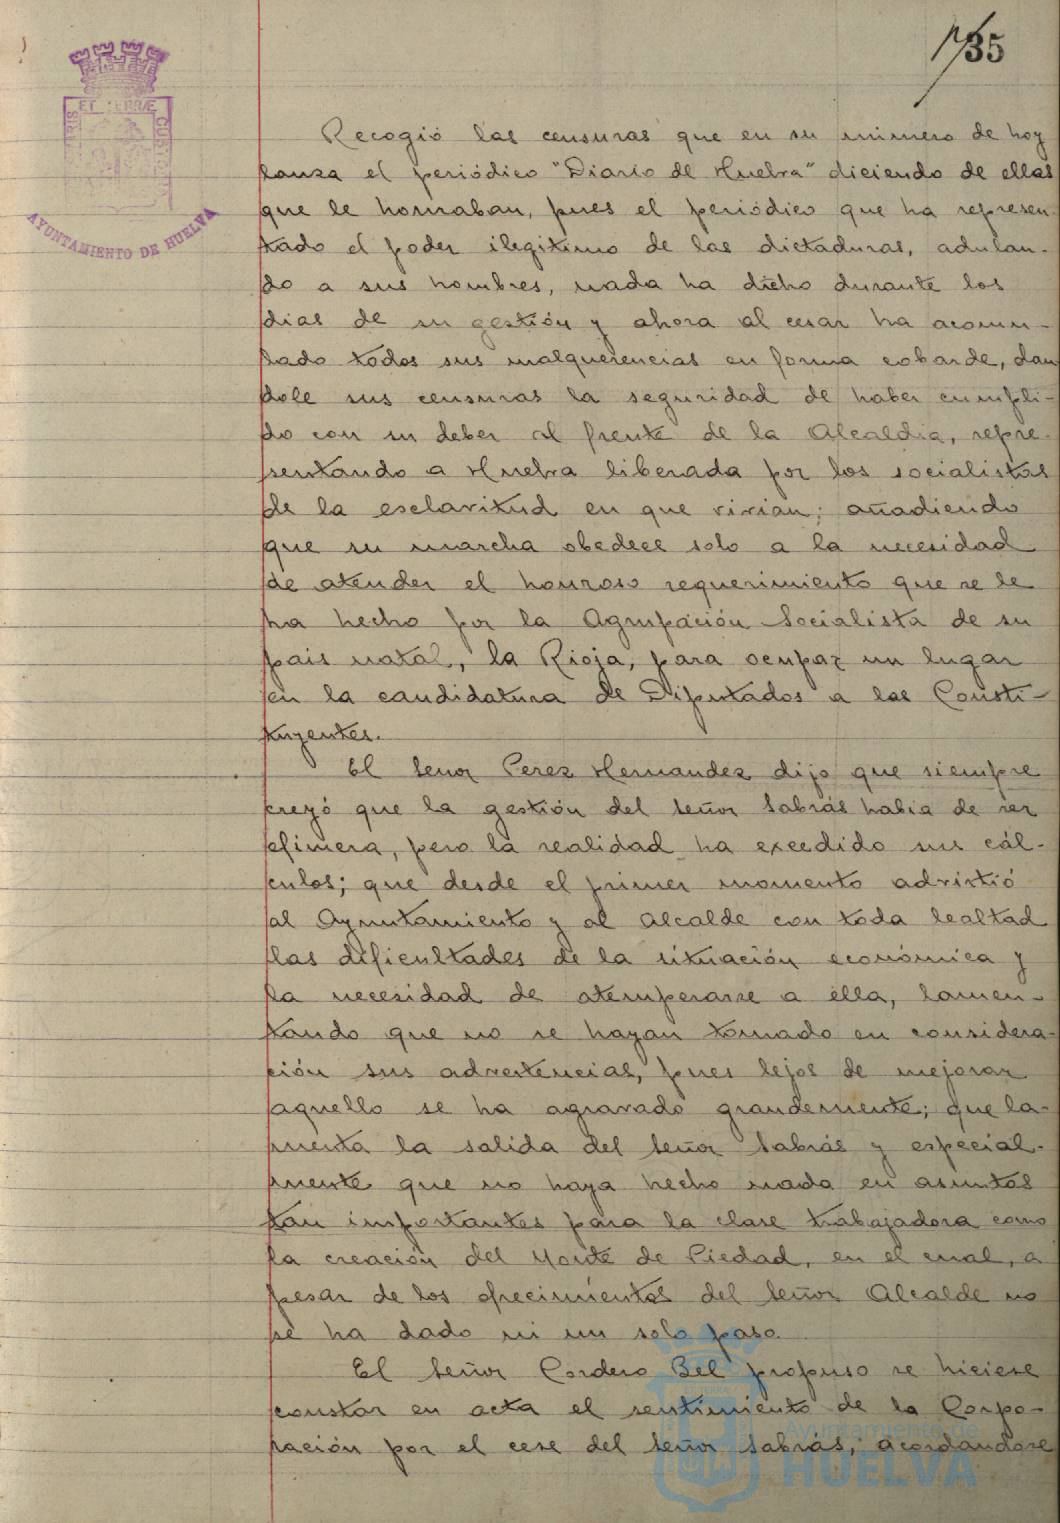 135
PORTUS MARIS ET TERRÆ CUSTODIA
AYUNTAMIENTO DE HUELVA
Recogió las censuras que en su número de hoy
lanza el periódico "Diario de Huelva" diciendo de ellas
que le honraban, pues el periódico que ha represen-
tado el poder ilegítimo de las dictaduras, adulan-
do a sus hombres, nada ha dicho durante los
dias de su gestión y ahora al cesar ha acomu-
lado todos sus malquerencias en forma cobarde, dan
dole sus censuras la seguridad de haber cumpli-
do con su deber al frente de la Alcaldia, repre-
sentando a Huelva liberada por los socialistas
de la esclavitud en que vivian; añadiendo
que su marcha obedece solo a la necesidad
de atender el honroso requerimiento que se le
ha hecho por la Agrupación Socialista de su
pais natal, la Rioja, para ocupar un lugar
en la candidatura de Diputados a las Consti-
tuyentes.
El Señor Perez Hernandez dijo que siempre
creyó que la gestión del Señor Sabrás habia de ser
efimera, pero la realidad ha excedido sus cál-
culos; que desde el primer momento advirtió
al Ayuntamiento y al Alcalde con toda lealtad
las dificultades de la situación económica y
la necesidad de atemperarse a ella, lamen-
tando que no se hayan tomado en considera-
ción sus advertencias, pues lejos de mejorar
aquello se ha agravado grandemente; que la-
menta la salida del Señor Sabrás y especial-
mente que no haya hecho nada en asuntos
tan importantes para la clase trabajadora como
la creación del Monte de Piedad, en el cual, a
pesar de los ofrecimientos del Señor Alcalde no
se ha dado ni un solo paso.
El Señor Cordero Bel propuso se hiciese
constar en acta el sentimiento de la Corpo-
ración por el cese del Señor Sabrás, acordandose
Ayuntamiento de
HUELVA